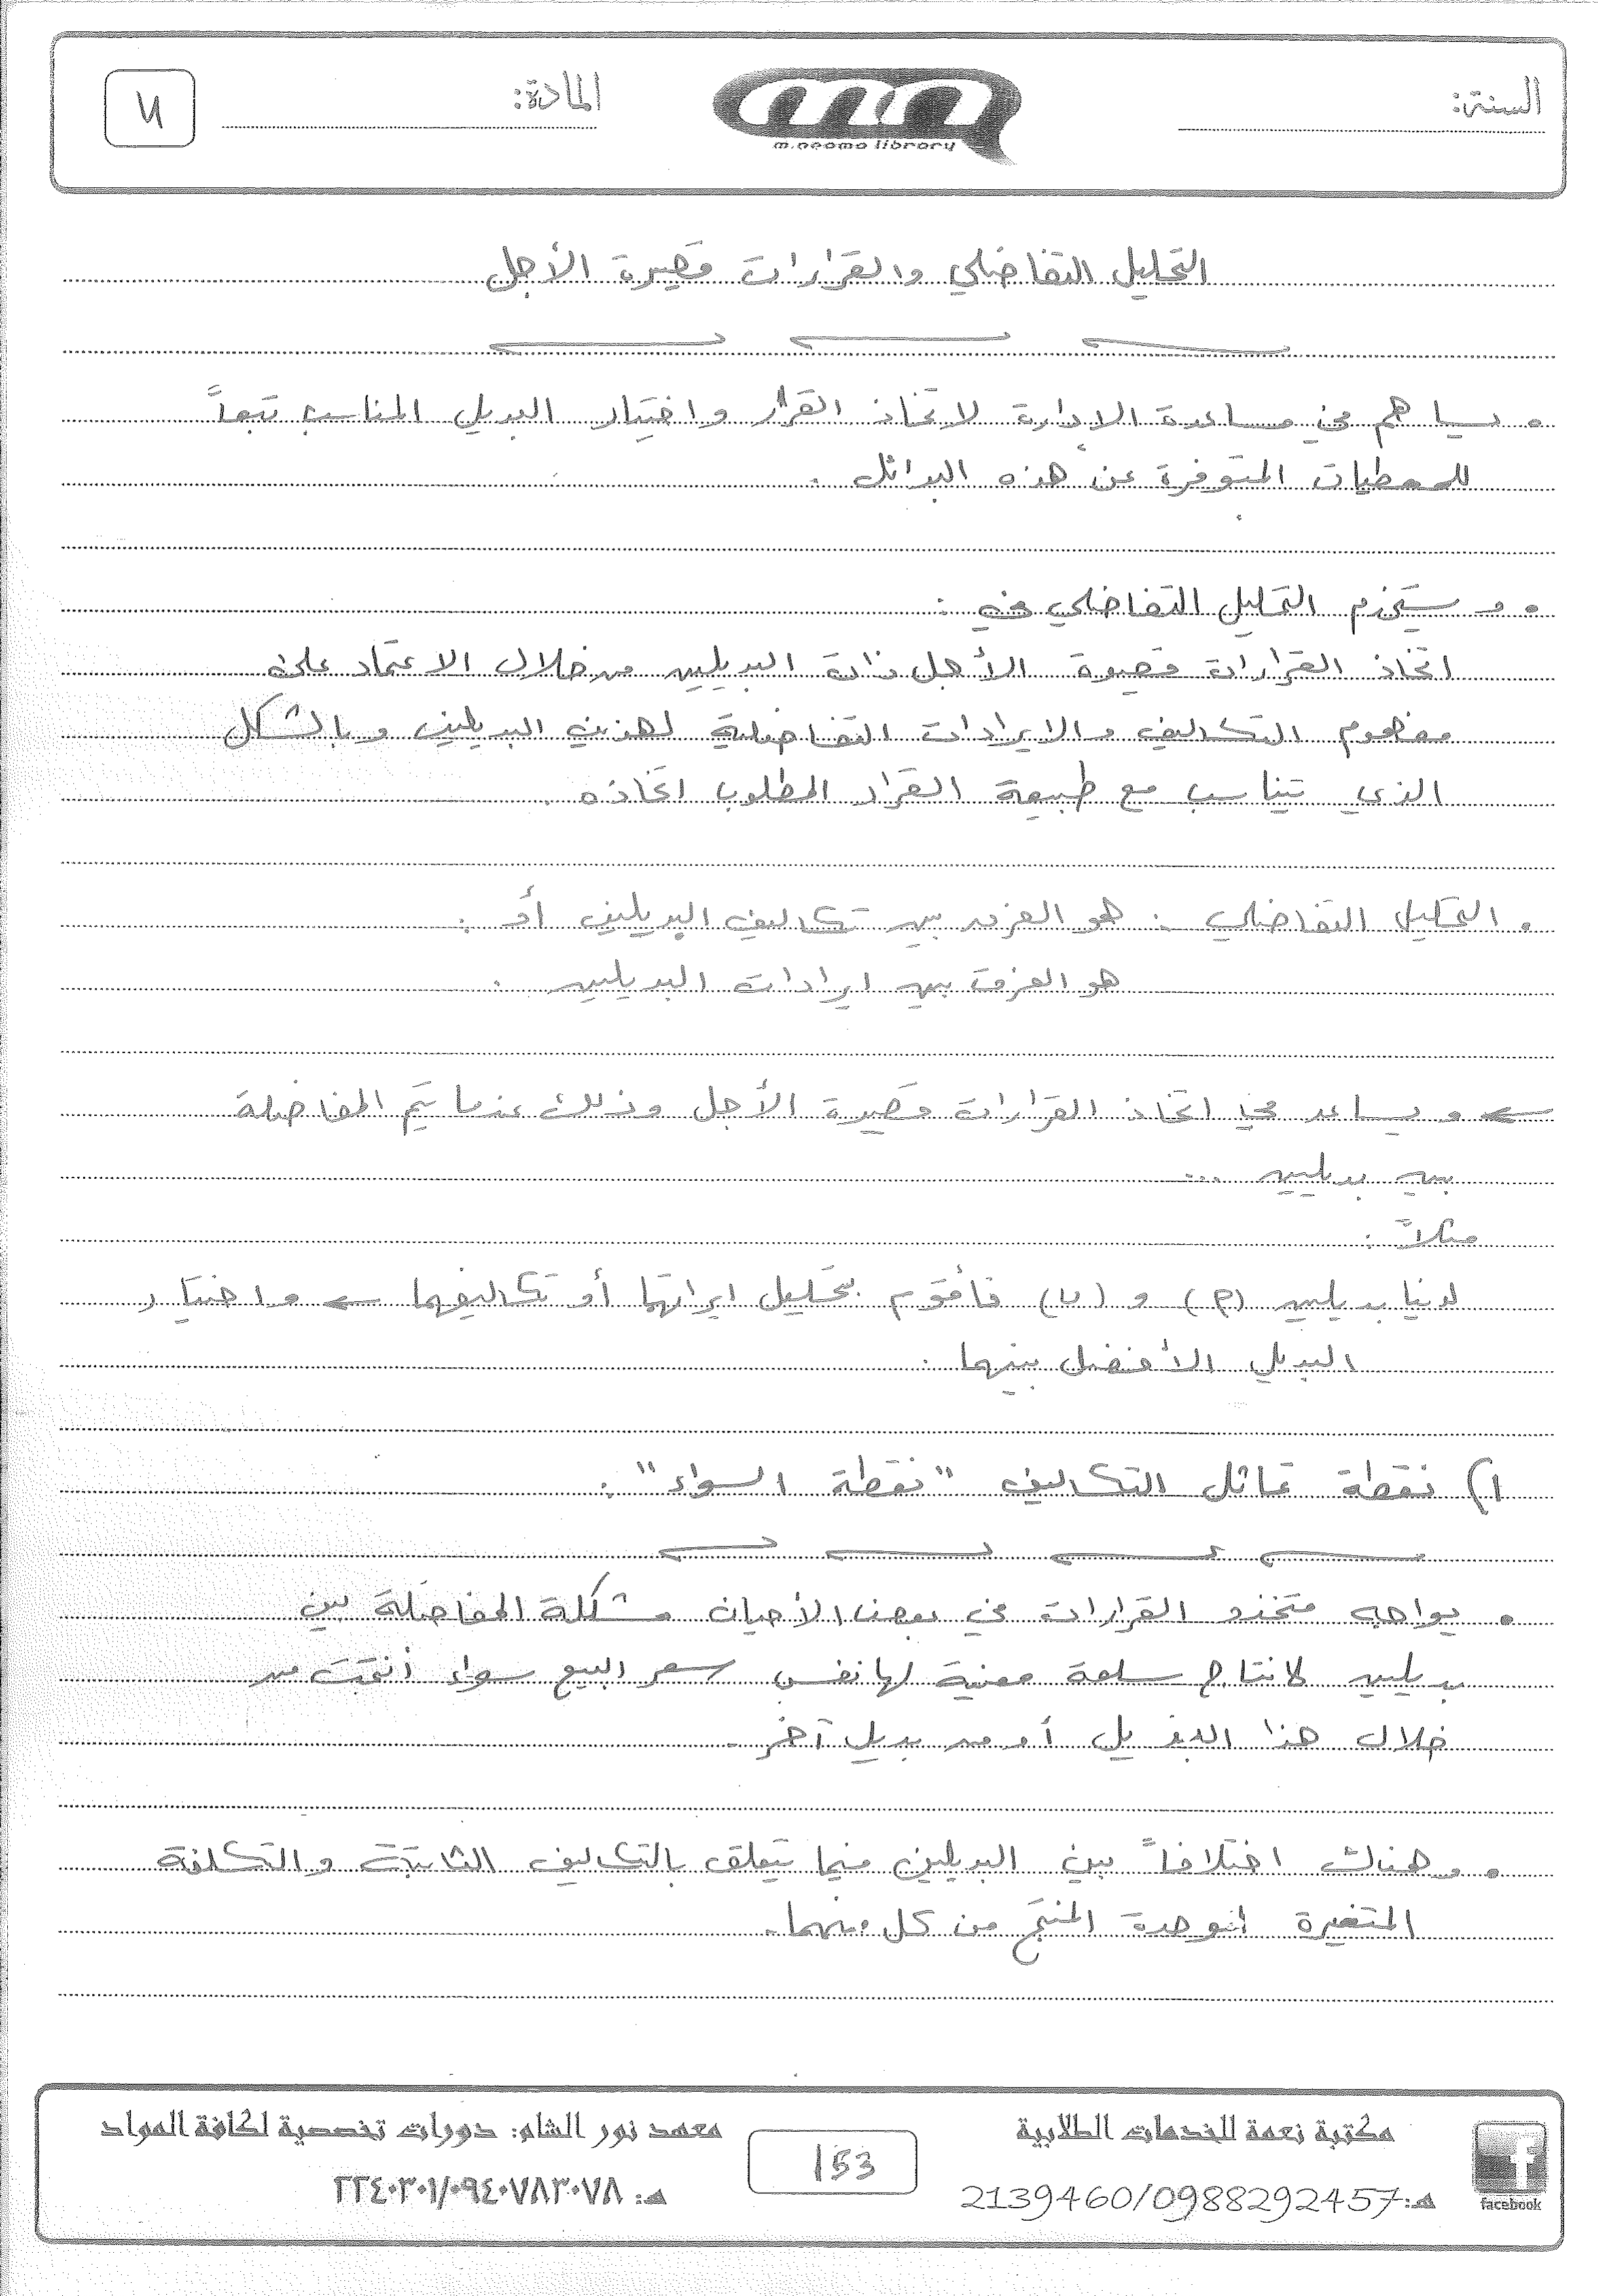 السنة:
m.neoma library
المادة:
التحليل التفاضلي والقرارات قصيرة الأجل
• يساهم في مساعدة الادارة لاتخاذ القرار واختيار البديل المناسب تبعاً
للمعطيات المتوفرة عن هذه البدائل .
• و يستخدم التحليل التفاضلي في :
اتخاذ القرارات قصيرة الأجل ذات البديلين من خلال الاعتماد على
مفهوم التكاليف والايرادات التفاضلية لهذين البديلين وبالشكل
الذي تيناسب مع طبيعة القرار المطلوب اتخاذه .
• التحليل التفاضلي : هو الفرق بين تكاليف البديلين أو :
هو الفرق بين ايرادات البديلين .
← و يساعد في اتخاذ القرارات قصيرة الأجل وذلك عندما يتم المفاضلة
بين بديلين ...
مثلاً :
لدينا بديلين (م) و (ب) فأقوم بتحليل ايراتهما أو تكاليفهما ← واختيار
البديل الأفضل بينهما .
١) نقطة تماثل التكاليف "نقطة السواء" :
• يواجه متخذو القرارات في بعض الأحيان مشكلة المفاضلة بين
بديلين لانتاج سلعة معينة لها نفس سعر البيع سواء أنتجت من
خلال هذا البديل أو من بديل آخر .
• وهناك اختلافاً بين البديلين فيما يتعلق بالتكاليف الثابتة والتكلفة
المتغيرة لوحدة المنتج من كل منهما .
مكتبة نعمة للخدمات الطلابية
معهد نور الشام: دورات تخصصية لكافة المواد
153
هـ: 2139460/0988292457
هـ: ٢٢٤٠٣٠١/٠٩٤٠٧٨٣٠٧٨
facebook